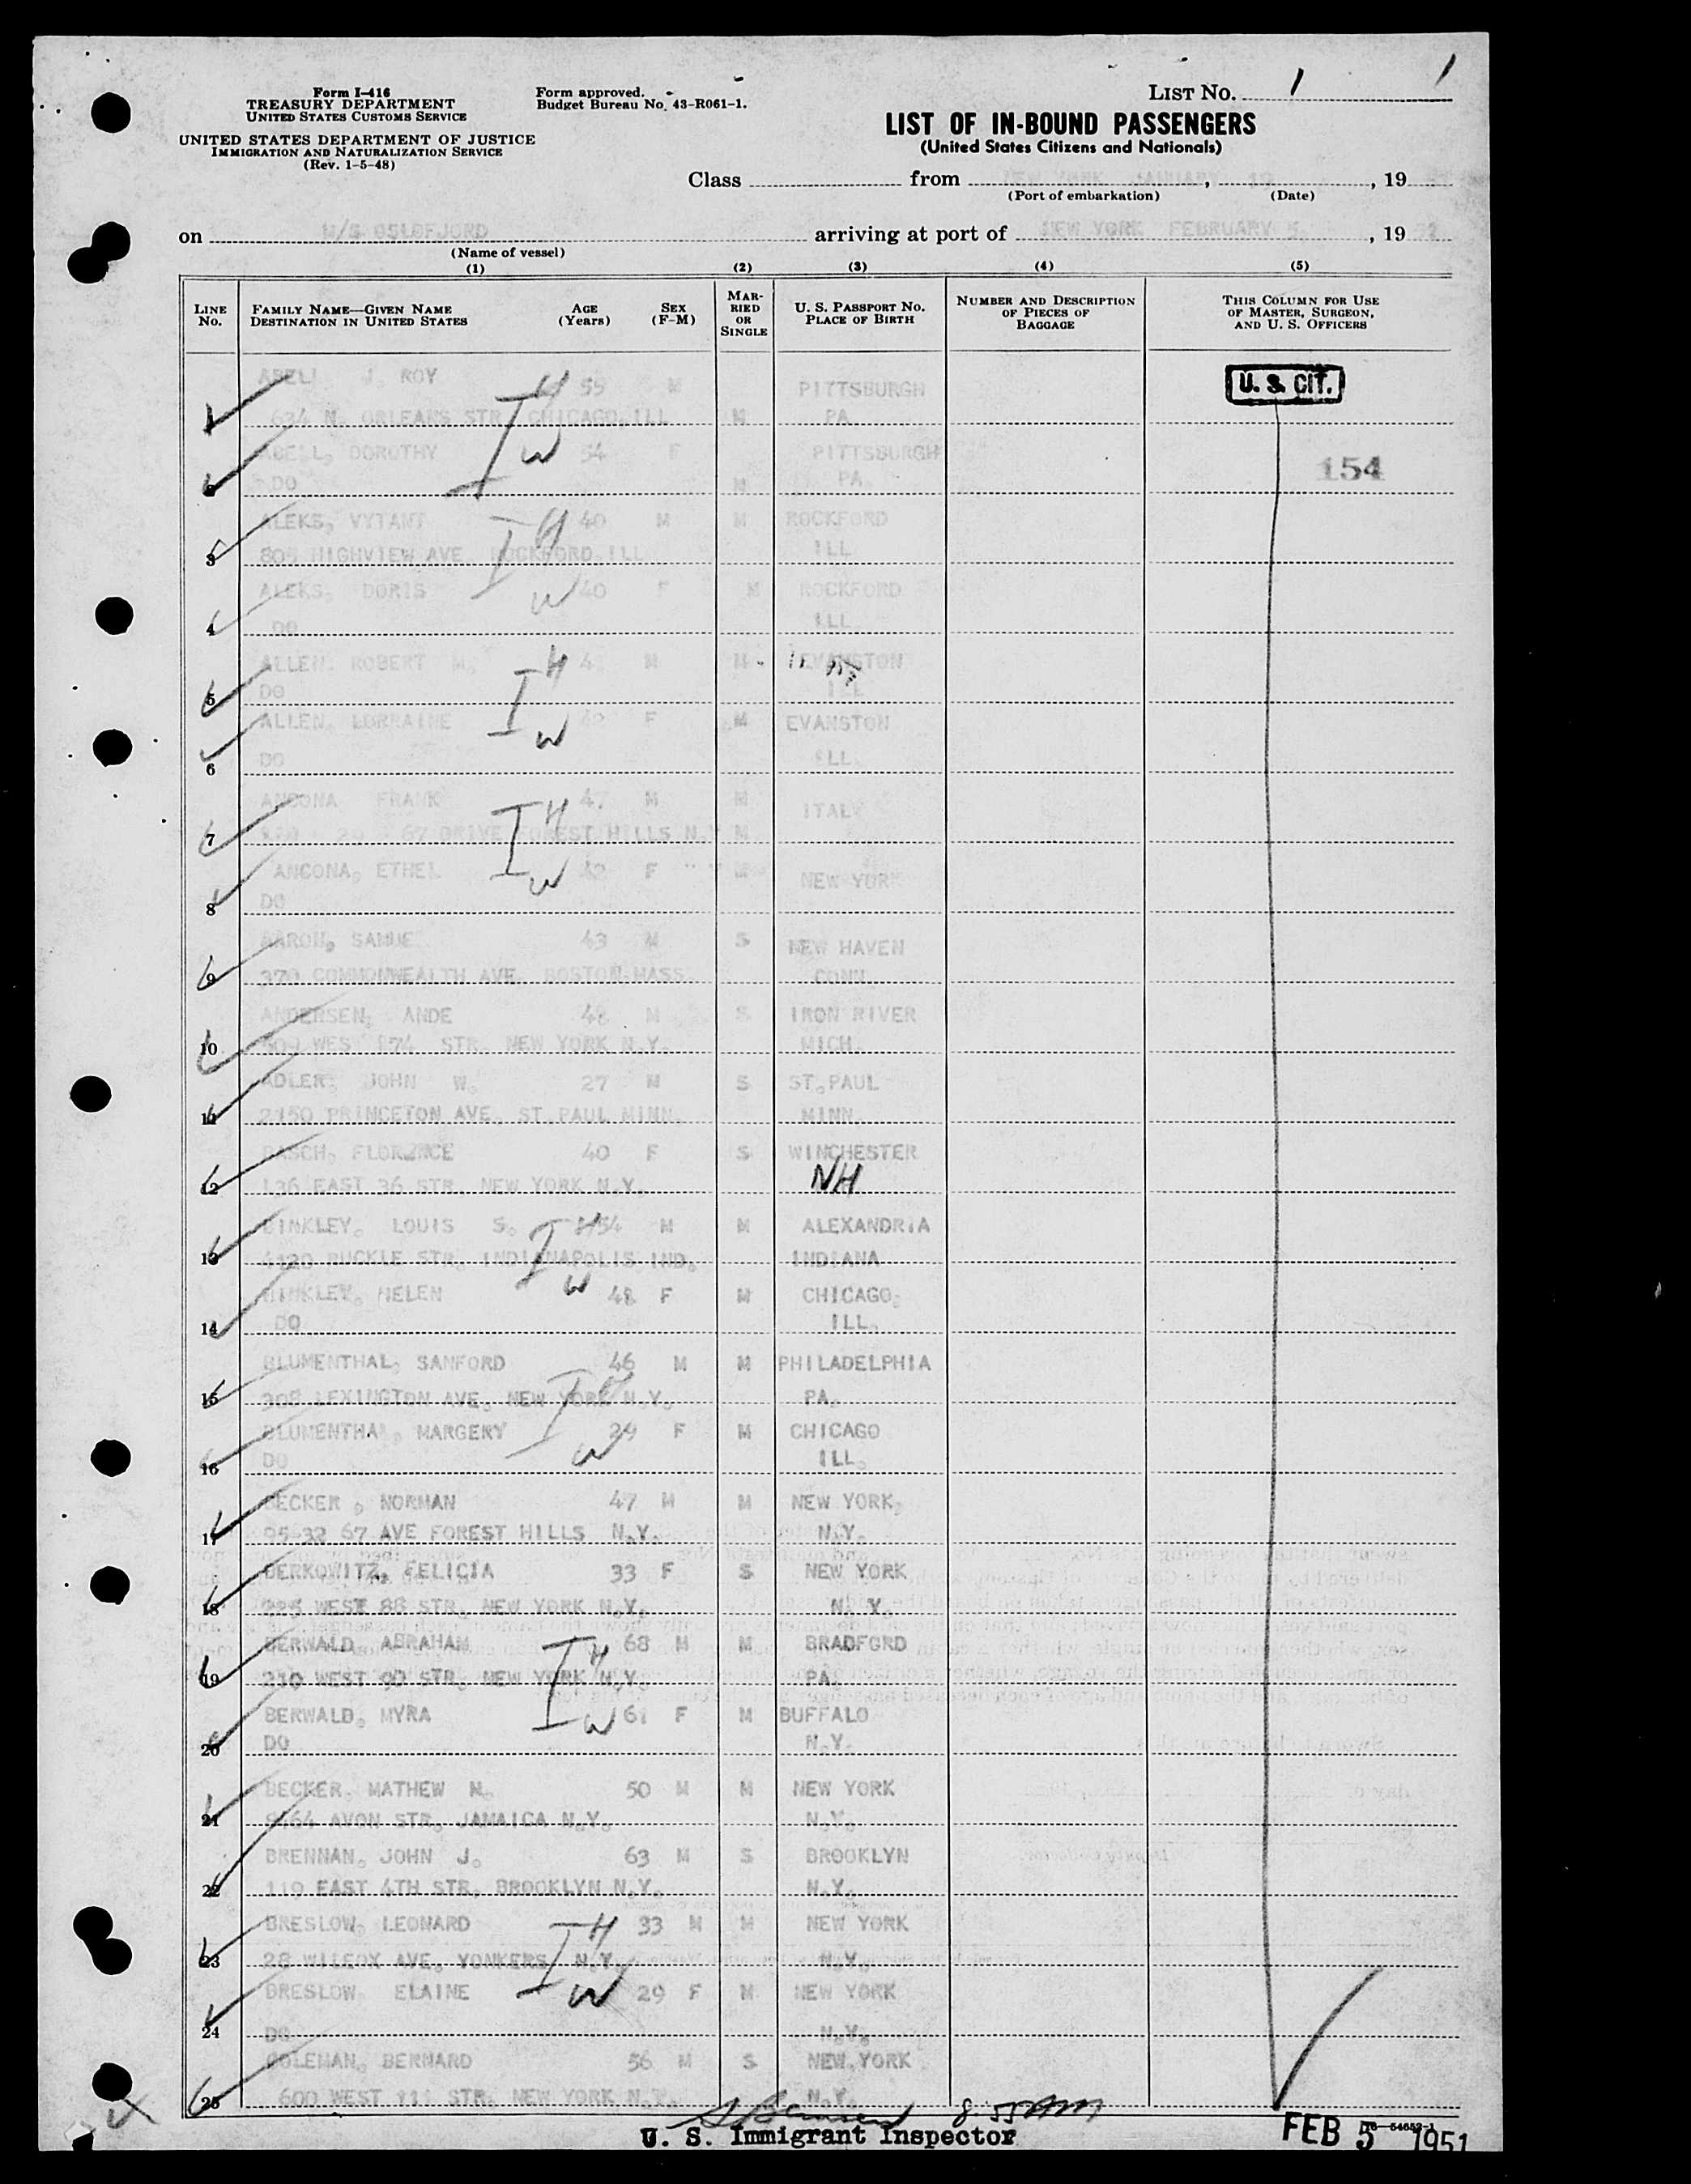 Form I-416
TREASURY DEPARTMENT
UNITED STATES CUSTOMS SERVICE
UNITED STATES DEPARTMENT OF JUSTICE
IMMIGRATION AND NATURALIZATION SERVICE
(Rev. 1-5-48)
Form approved.
Budget Bureau No. 43-R061-1.
LIST NO. 1
1
LIST OF IN-BOUND PASSENGERS
(United States Citizens and Nationals)
Class from NEW YORK JANUARY 19, 19
(Port of embarkation) (Date)
on M/S OSLOFJORD arriving at port of NEW YORK FEBRUARY 5, 19
(Name of vessel)
(1) (2) (3) (4) (5)
LINE No. FAMILY NAME—GIVEN NAME DESTINATION IN UNITED STATES AGE (Years) SEX (F-M) MARRIED OR SINGLE U. S. PASSPORT NO. PLACE OF BIRTH NUMBER AND DESCRIPTION OF PIECES OF BAGGAGE THIS COLUMN FOR USE OF MASTER, SURGEON, AND U. S. OFFICERS
ABELL J. ROY H 55 M PITTSBURGH U. S. CIT.
1 634 N. ORLEANS STR. CHICAGO, ILL M PA.
ABELL, DOROTHY W 54 F PITTSBURGH 154
2 DO M PA.
ALEKS, VYTANT H 40 M M ROCKFORD
3 805 HIGHVIEW AVE. ROCKFORD, ILL ILL
ALEKS, DORIS W 40 F M ROCKFORD
4 DO ILL.
ALLEN, ROBERT M. H M M EVANSTON
5 DO ILL
ALLEN, LORRAINE W F M EVANSTON
6 DO ILL.
ANCONA FRANK H 47 M M ITALY
7 67 DRIVE FOREST HILLS N.Y M
ANCONA, ETHEL W F M NEW YORK
8 DO
AARON, SAMUEL 43 M S NEW HAVEN
9 370 COMMONWEALTH AVE. BOSTON MASS. CONN.
ANDERSEN, ANDE 48 M S IRON RIVER
10 509 WEST 174 STR. NEW YORK N.Y. MICH.
ADLER, JOHN W. 27 M S ST.PAUL
11 2150 PRINCETON AVE. ST.PAUL MINN. MINN.
BASCH, FLORENCE 40 F S WINCHESTER
12 136 EAST 36 STR. NEW YORK N.Y. NH
BINKLEY, LOUIS S. H 54 M M ALEXANDRIA
13 4120 RUCKLE STR. INDIANAPOLIS IND. INDIANA
BINKLEY, HELEN W 48 F M CHICAGO,
14 DO ILL.
BLUMENTHAL, SANFORD H 46 M M PHILADELPHIA
15 308 LEXINGTON AVE. NEW YORK N.Y. PA.
BLUMENTHAL, MARGERY W 29 F M CHICAGO
16 DO ILL.
BECKER, NORMAN 47 M M NEW YORK,
17 95-32 67 AVE FOREST HILLS N.Y. N.Y.
BERKOWITZ, FELICIA 33 F S NEW YORK
18 225 WEST 88 STR. NEW YORK N.Y. N.Y.
BERWALD, ABRAHAM H 68 M M BRADFORD
19 210 WEST 90 STR. NEW YORK N.Y. PA.
BERWALD, MYRA W 61 F M BUFFALO
20 DO N.Y.
BECKER, MATHEW M. 50 M M NEW YORK
21 8464 AVON STR. JAMAICA N.Y. N.Y.
BRENNAN, JOHN J. 63 M S BROOKLYN
22 119 EAST 4TH STR. BROOKLYN N.Y. N.Y.
BRESLOW, LEONARD H 33 M M NEW YORK
23 28 WILCOX AVE. YONKERS N.Y. N.Y.
BRESLOW, ELAINE W 29 F M NEW YORK
24 DO N.Y.
COLEMAN, BERNARD 56 M S NEW YORK
25 600 WEST 111 STR. NEW YORK N.Y. N.Y.
8:55 AM
U. S. Immigrant Inspector
FEB 5 1951